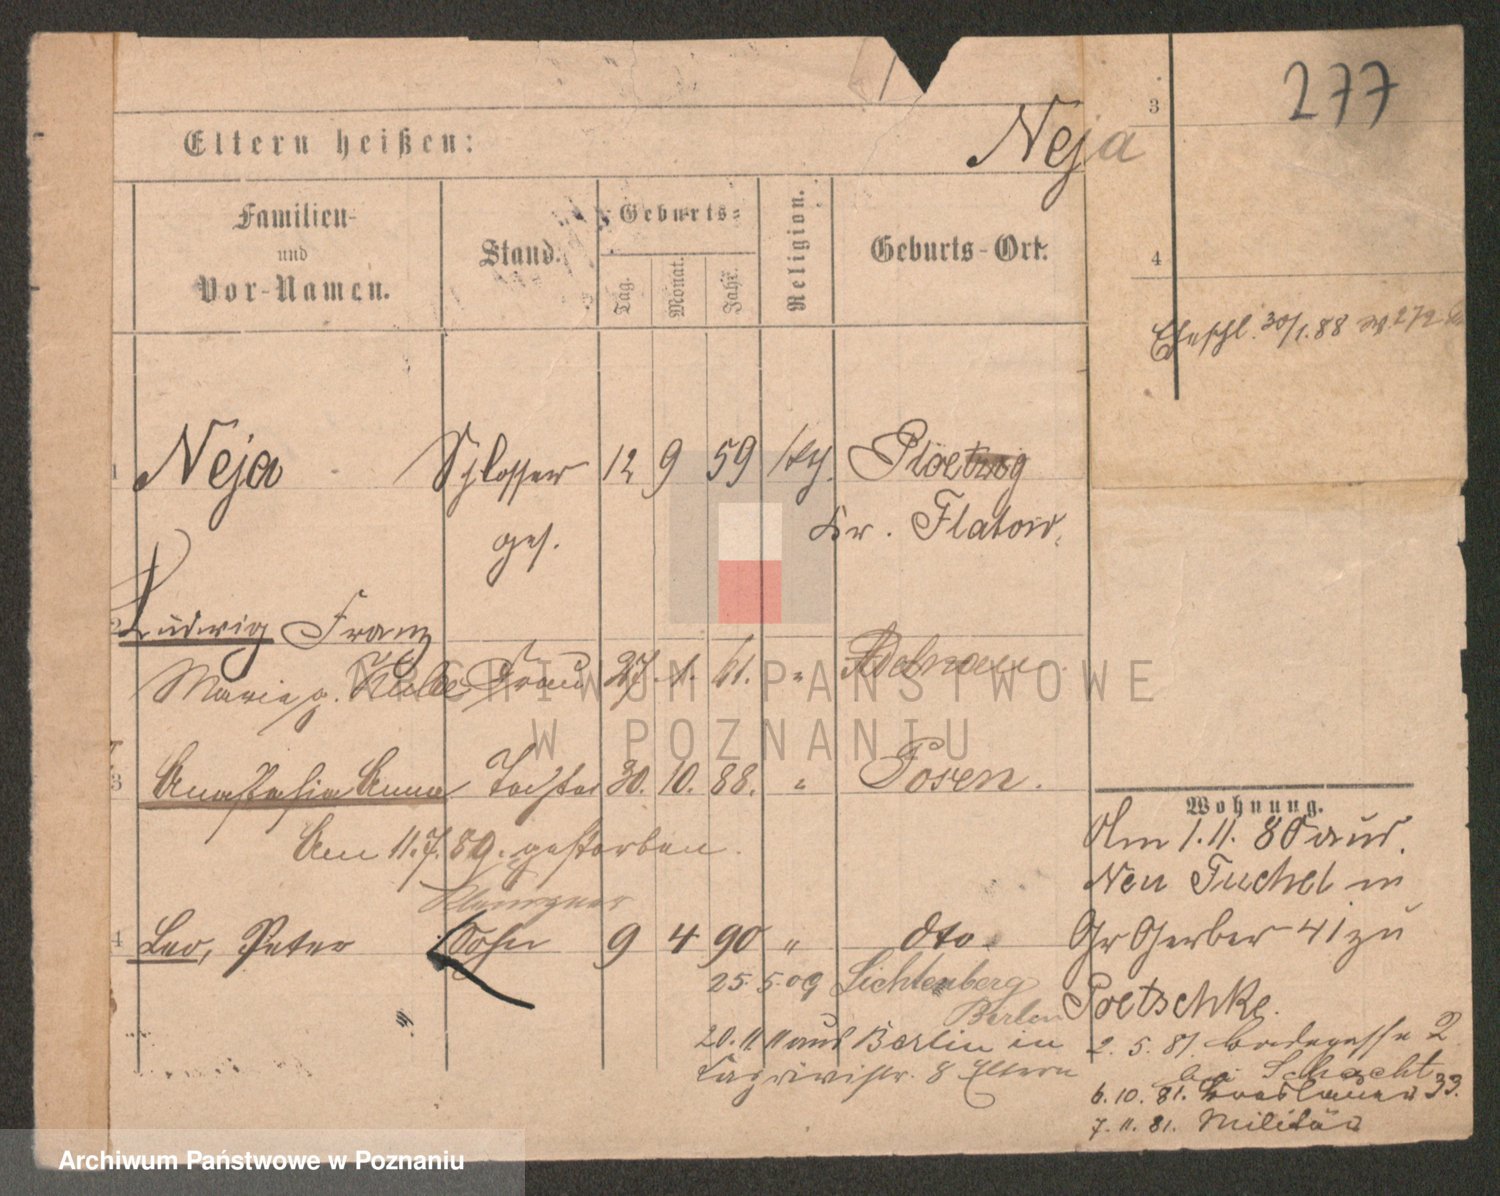 277
3
Eltern heißen:
Neja
Familien-
und
Vor-Namen.
Stand.
Geburts-
Tag.
Monat.
Jahr.
Religion.
Geburts-Ort.
4
Eheschl. 30/1.88 272
1
Neja Schlosser 12 9 59 kth. Ploetzig
ges. Kr. Flatow.
2
Ludwig Franz
Marie g. Frau 27. 1. 61. "
3
Anastasia Anna Tochter 30. 10. 88. " Posen.
Am 11.7.89. gestorben.
Klempner
4
Leo, Peter Sohn 9 4 90 " dto.
25. 5. 09 Lichtenberg
Berlin
20. 11. 11 aus Berlin in
8 Eltern
Wohnung.
Am 1. 11. 80 aus.
Neu Tuchel in
Gr Gerber 41 zu
Poetschke.
2. 5. 81. 2
bei Schacht
6. 10. 81. Breslauer 33.
7. 11. 81. Militär
ARCHIWUM PAŃSTWOWE
W POZNANIU
Archiwum Państwowe w Poznaniu